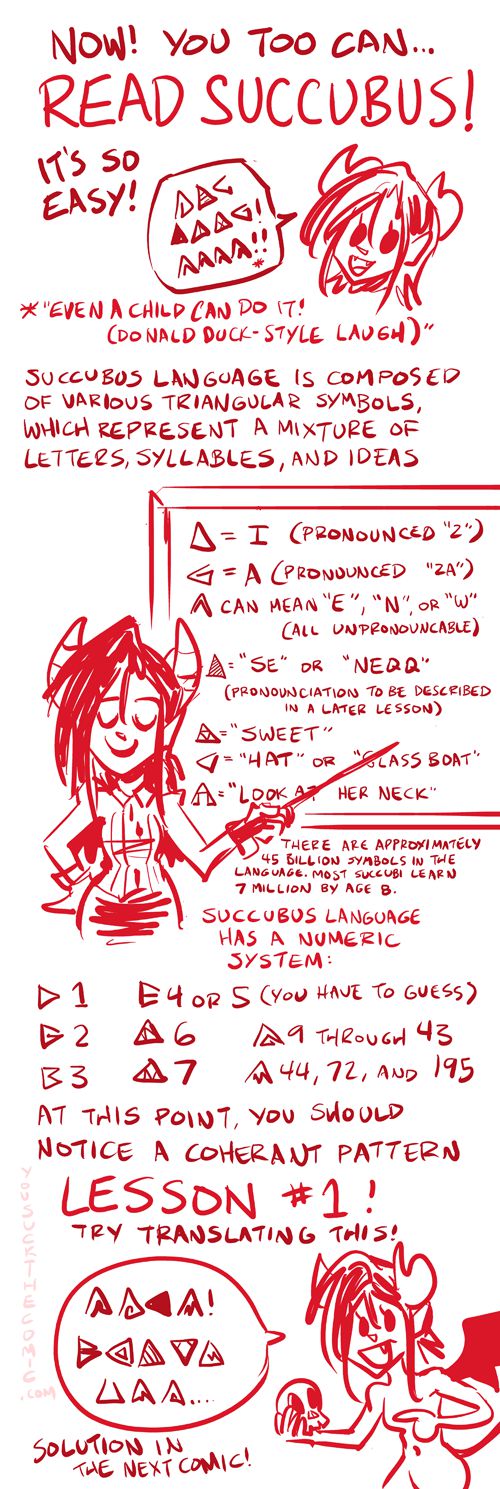 NOW! YOU TOO CAN...
READ SUCCUBUS!
IT'S SO
EASY!
*"EVEN A CHILD CAN DO IT!
(DONALD DUCK-STYLE LAUGH)"
SUCCUBUS LANGUAGE IS COMPOSED
OF VARIOUS TRIANGULAR SYMBOLS,
WHICH REPRESENT A MIXTURE OF
LETTERS, SYLLABLES, AND IDEAS
= I (PRONOUNCED "Z")
= A (PRONOUNCED "ZA")
CAN MEAN "E", "N", OR "W"
(ALL UNPRONOUNCABLE)
= "SE" OR "NEQQ"
(PRONOUNCIATION TO BE DESCRIBED
IN A LATER LESSON)
= "SWEET"
= "HAT" OR "GLASS BOAT"
= "LOOK AT HER NECK"
THERE ARE APPROXIMATELY
45 BILLION SYMBOLS IN THE
LANGUAGE. MOST SUCCUBI LEARN
7 MILLION BY AGE 8.
SUCCUBUS LANGUAGE
HAS A NUMERIC
SYSTEM:
1 4 OR 5 (YOU HAVE TO GUESS)
2 6 9 THROUGH 43
3 7 44, 72, AND 195
AT THIS POINT, YOU SHOULD
NOTICE A COHERANT PATTERN
LESSON #1!
TRY TRANSLATING THIS!
SOLUTION IN
THE NEXT COMIC!
YOUSUCKTHECOMIC.COM